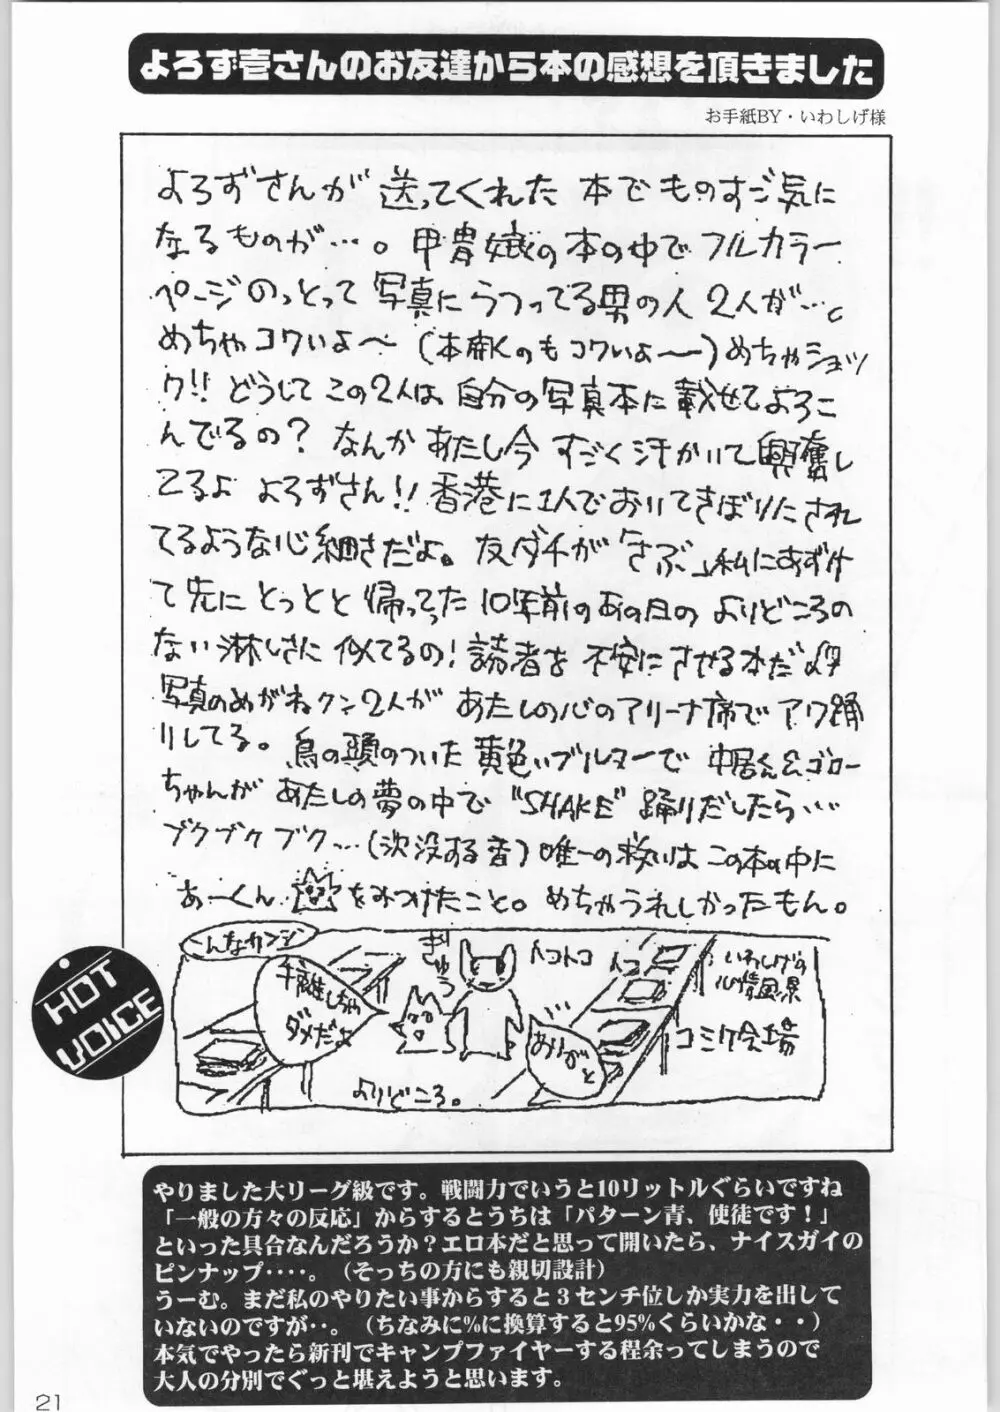 よろず壱さんのお友達から本の感想を頂きました
お手紙BY・いわしげ様
よろずさんが送ってくれた本でものすご気に
なるものが…。甲冑娘の本の中でフルカラー
ページのっとって写真にうつってる男の人2人が…。
めちゃコワいよ〜(本開くのもコワいよ〜)めちゃショッ
ク!!どうしてこの2人は自分の写真本に載せてよろこ
んでるの?なんかあたし今すごく汗かいて興奮し
てるよよろずさん!!香港に1人でおいてきぼりにされ
てるような心細さだよ。友ダチが「さぶ」私にあずけ
て先にとっとと帰ってった10年前のあの日のよりどころの
ない淋しさに似てるの!読者を不安にさせる本だ
写真のめがねクン2人があたしの心のアリーナ席でアワ踊
りしてる。鳥の頭のついた黄色いブルマーで中居くん&ゴロー
ちゃんがあたしの夢の中で"SHAKE"踊りだしたら…
ブクブクブク…(沈没する音)唯一の救いはこの本の中に
あーくんをみつけたこと。めちゃうれしかったもん。
こんなカンジ
手離しちゃ
ダメだよ
ぎゅう
トコトコ
トコ
ありがと
よりどころ。
いわしげの
心情風景
コミケ会場
HOT
VOICE
やりました大リーグ級です。戦闘力でいうと10リットルぐらいですね
「一般の方々の反応」からするとうちは「パターン青、使徒です！」
といった具合なんだろうか？エロ本だと思って開いたら、ナイスガイの
ピンナップ‥‥。（そっちの方にも親切設計）
うーむ。まだ私のやりたい事からすると３センチ位しか実力を出して
いないのですが‥。（ちなみに%に換算すると95%くらいかな・・）
本気でやったら新刊でキャンプファイヤーする程余ってしまうので
大人の分別でぐっと堪えようと思います。
21